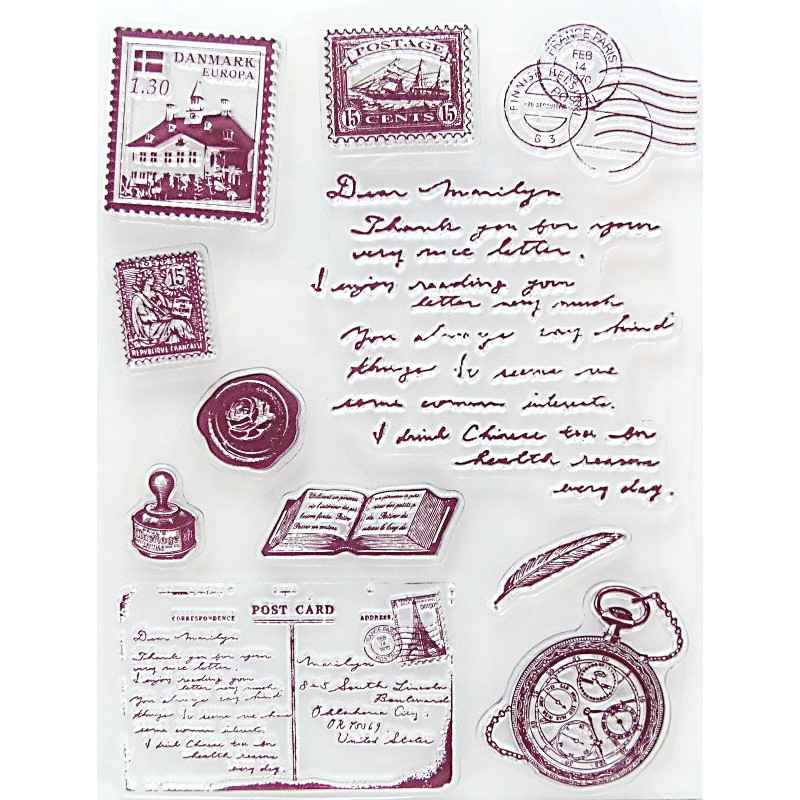 DANMARK
EUROPA
1.30
POSTAGE
15 15
CENTS
FRANCE-PARIS
FEB
14
1970
FINNISH
POST
63
Dear Marilyn
Thank you for your
very nice letter.
I enjoy reading your
letter very much
You always say kind
things It seems we
some common interests.
I drink Chinese tea for
health reasons
every day.
15
REPUBLIQUE FRANCAISE
POST CARD
CORRESPONDENCE
ADDRESS
FRANCE-PARIS
FEB
14
1970
Dear Marilyn
Thank you for your
very nice letter.
I enjoy reading your
letter very much
You always say kind
things It seems we have
some common interests.
I drink Chinese tea for
health reasons
every day.
Marilyn
South Lincoln
Boulevard
Oklahoma City,
United States